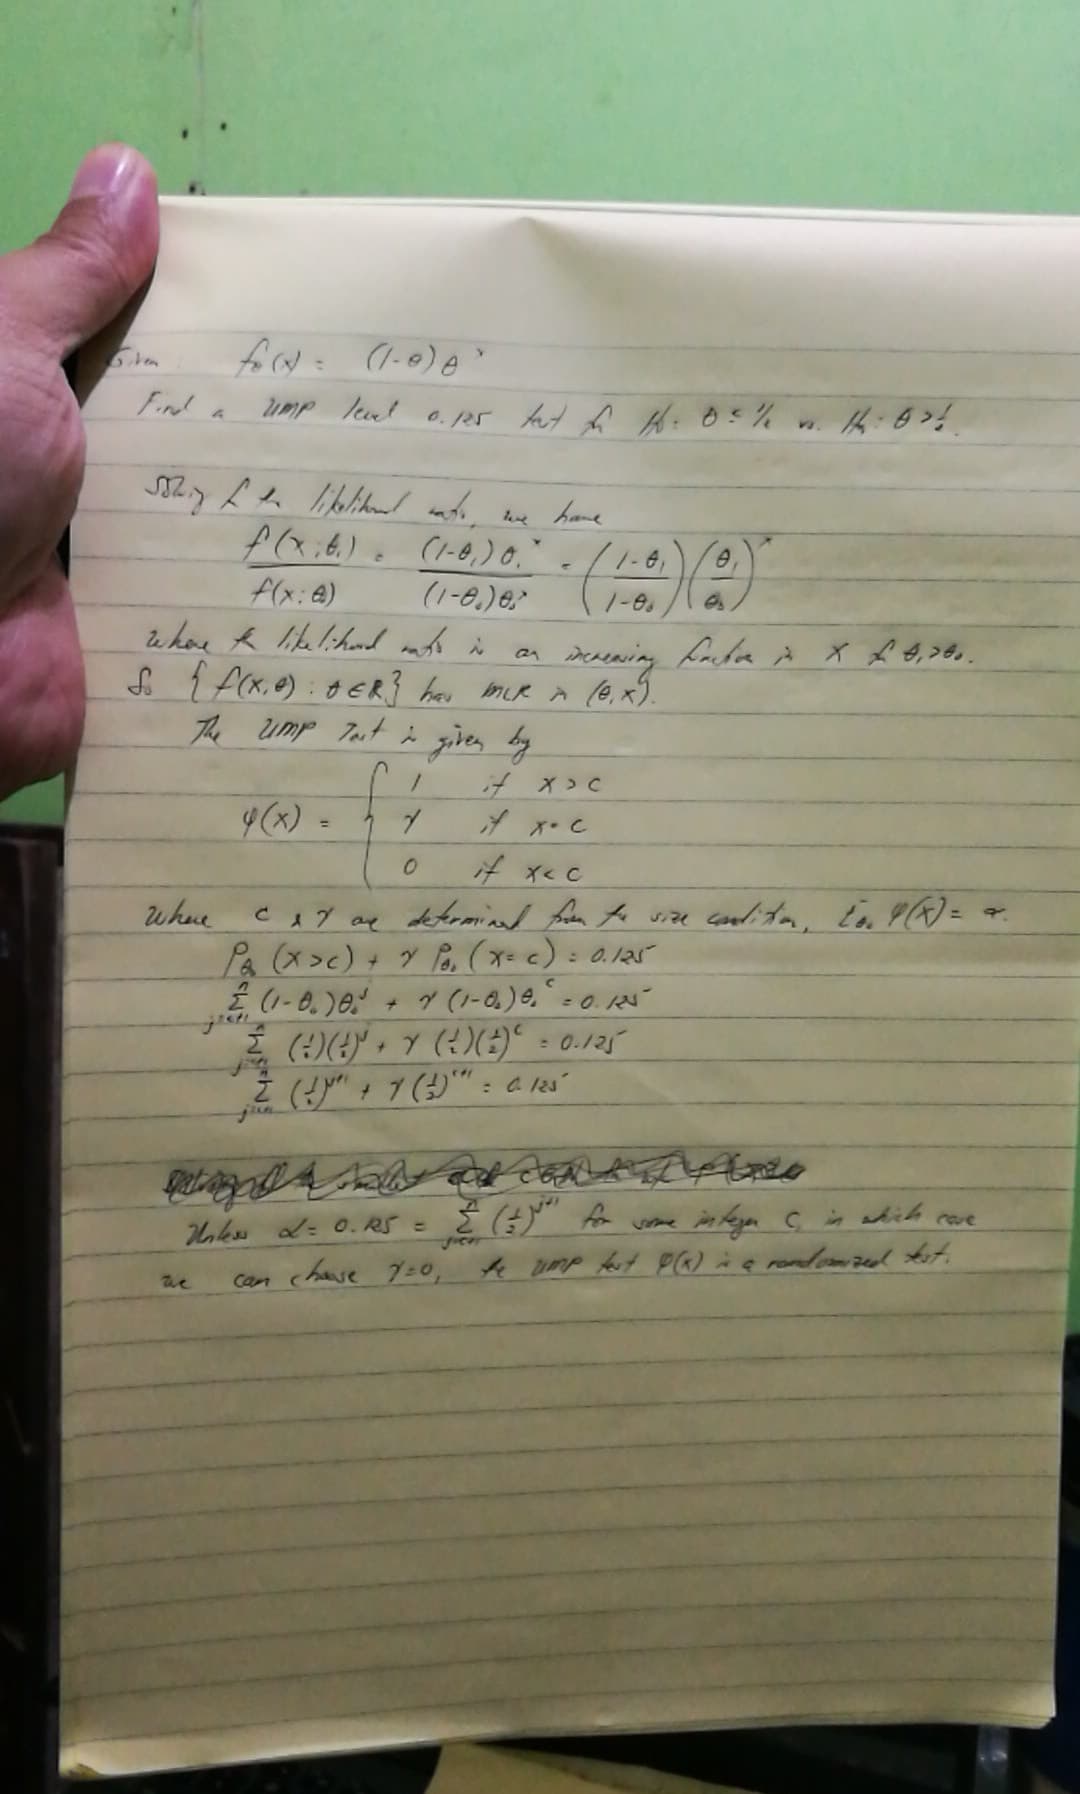 Given: fθ(x) = (1-θ)θˣ
Find a UMP level 0.125 test for H₀: θ ≤ 1/2 vs. H₁: θ > 1/2.
Solving for the likelihood ratio, we have
f(x;θ₁)/f(x;θ₀) = (1-θ₁)θ₁ˣ/(1-θ₀)θ₀ˣ = ((1-θ₁)/(1-θ₀))(θ₁/θ₀)ˣ
Where the likelihood ratio is an increasing function in x for θ₁>θ₀.
So {f(x,θ) : θ∈R} has MLR in (θ,x).
The UMP Test is given by
φ(x) = { 1 if x > c
γ if x = c
0 if x < c
Where c & γ are determined from the size condition, E_θ₀ φ(x) = α.
P_θ₀(x>c) + γ P_θ₀(x=c) = 0.125
Σ_{j=c+1}^{n} (1-θ₀)θ₀ʲ + γ(1-θ₀)θ₀ᶜ = 0.125
Σ_{j=c+1}^{n} (1/2)(1/2)ʲ + γ(1/2)(1/2)ᶜ = 0.125
Σ_{j=c+1}^{n} (1/2)ʲ⁺¹ + γ(1/2)ᶜ⁺¹ = 0.125
Unless α = 0.125 = Σ_{j=c+1}^{n} (1/2)ʲ⁺¹ for some integer c, in which case
we can choose γ=0, the UMP test φ(x) is a randomized test.